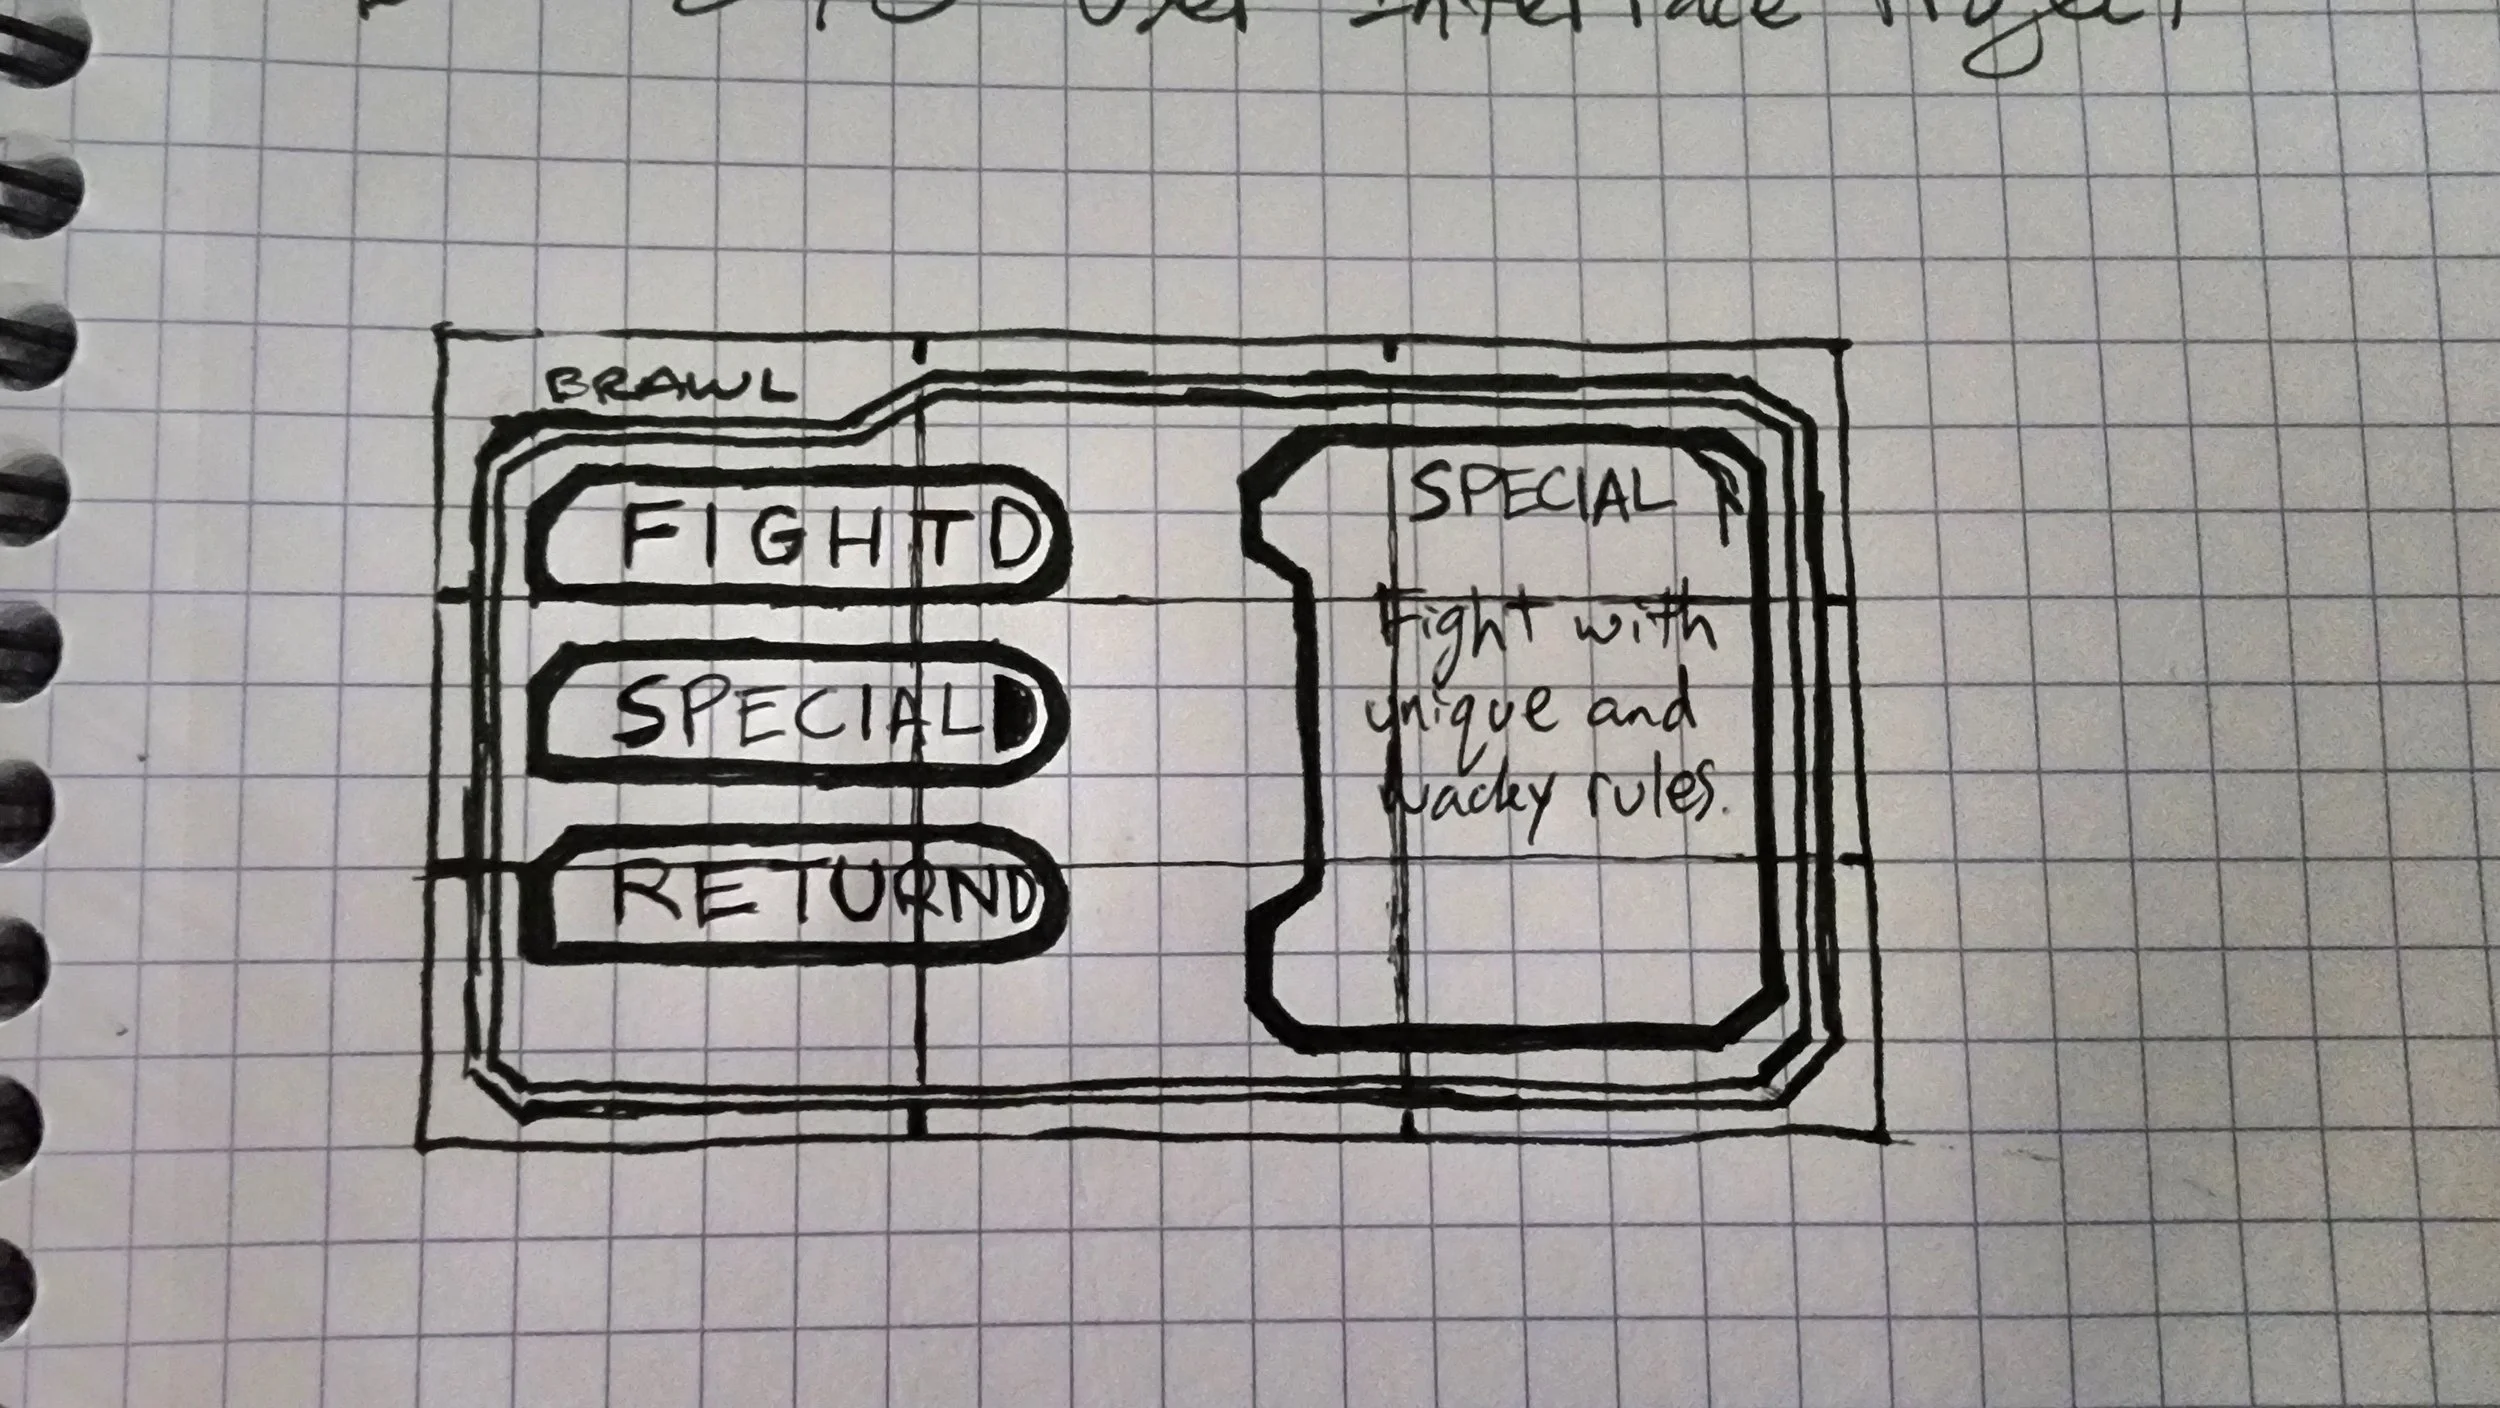 User Interface Project
BRAWL
FIGHT
SPECIAL
RETURN
SPECIAL
Fight with
unique and
wacky rules.